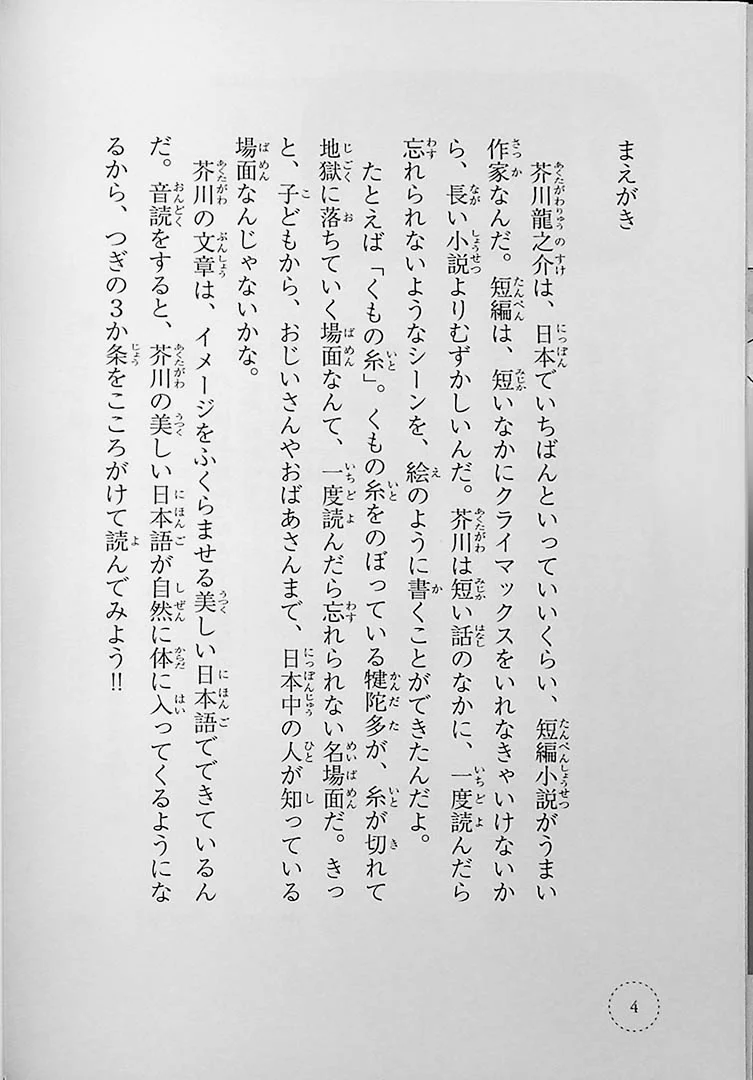 まえがき
芥川龍之介は、日本でいちばんといっていいくらい、短編小説がうまい
作家なんだ。短編は、短いなかにクライマックスをいれなきゃいけないか
ら、長い小説よりむずかしいんだ。芥川は短い話のなかに、一度読んだら
忘れられないようなシーンを、絵のように書くことができたんだよ。
たとえば「くもの糸」。くもの糸をのぼっている犍陀多が、糸が切れて
地獄に落ちていく場面なんて、一度読んだら忘れられない名場面だ。きっ
と、子どもから、おじいさんやおばあさんまで、日本中の人が知っている
場面なんじゃないかな。
芥川の文章は、イメージをふくらませる美しい日本語でできているん
だ。音読をすると、芥川の美しい日本語が自然に体に入ってくるようにな
るから、つぎの3か条をこころがけて読んでみよう!!
4